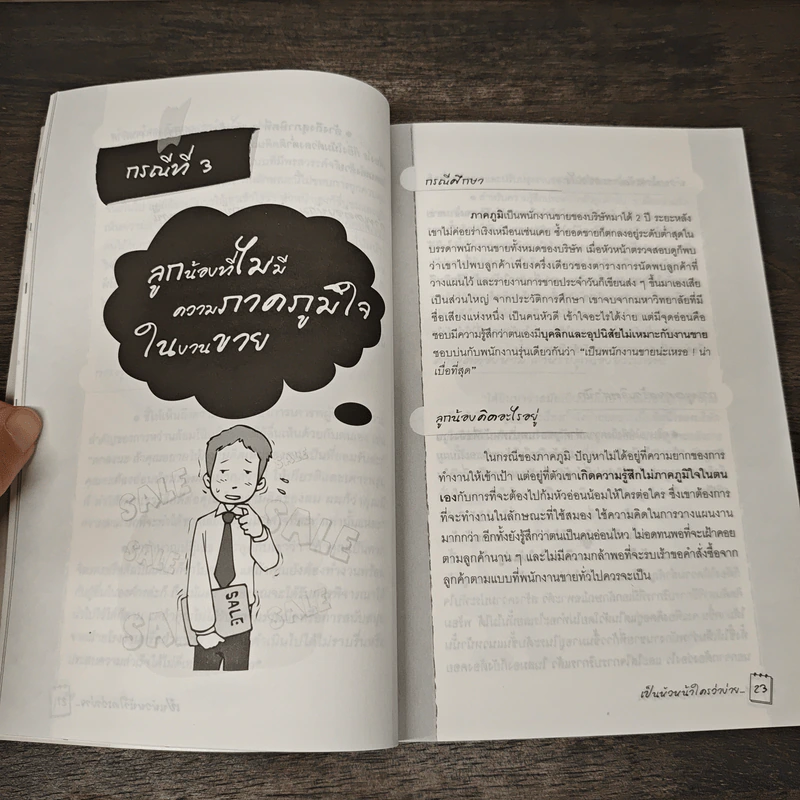 กรณีที่ 3
ลูกน้องที่ไม่มี
ความภาคภูมิใจ
ในงานขาย
SALE
SALE
SALE
SALE
SALE
กรณีศึกษา
ภาคภูมิเป็นพนักงานขายของบริษัทมาได้ 2 ปี ระยะหลัง
เขาไม่ค่อยร่าเริงเหมือนเช่นเคย ซ้ำยอดขายก็ตกลงอยู่ระดับต่ำสุดใน
บรรดาพนักงานขายทั้งหมดของบริษัท เมื่อหัวหน้าตรวจสอบดูก็พบ
ว่าเขาไปพบลูกค้าเพียงครึ่งเดียวของตารางการนัดพบลูกค้าที่
วางแผนไว้ และรายงานการขายประจำวันก็เขียนส่ง ๆ ขึ้นมาเองเสีย
เป็นส่วนใหญ่ จากประวัติการศึกษา เขาจบจากมหาวิทยาลัยที่มี
ชื่อเสียงแห่งหนึ่ง เป็นคนหัวดี เข้าใจอะไรได้ง่าย แต่มีจุดอ่อนคือ
ชอบมีความรู้สึกว่าตนเองมีบุคลิกและอุปนิสัยไม่เหมาะกับงานขาย
ชอบบ่นกับพนักงานรุ่นเดียวกันว่า “เป็นพนักงานขายน่ะเหรอ ! น่า
เบื่อที่สุด”
ลูกน้องคิดอะไรอยู่
ในกรณีของภาคภูมิ ปัญหาไม่ได้อยู่ที่ความยากของการ
ทำงานให้เข้าเป้า แต่อยู่ที่ตัวเขาเกิดความรู้สึกไม่ภาคภูมิใจในตน
เองกับการที่จะต้องไปก้มหัวอ่อนน้อมให้ใครต่อใคร ซึ่งเขาต้องการ
ที่จะทำงานในลักษณะที่ใช้สมอง ใช้ความคิดในการวางแผนงาน
มากกว่า อีกทั้งยังรู้สึกว่าตนเป็นคนอ่อนไหว ไม่อดทนพอที่จะเฝ้าคอย
ตามลูกค้านาน ๆ และไม่มีความกล้าพอที่จะรบเร้าขอคำสั่งซื้อจาก
ลูกค้าตามแบบที่พนักงานขายทั่วไปควรจะเป็น
เป็นหัวหน้าใครว่าง่าย... 23